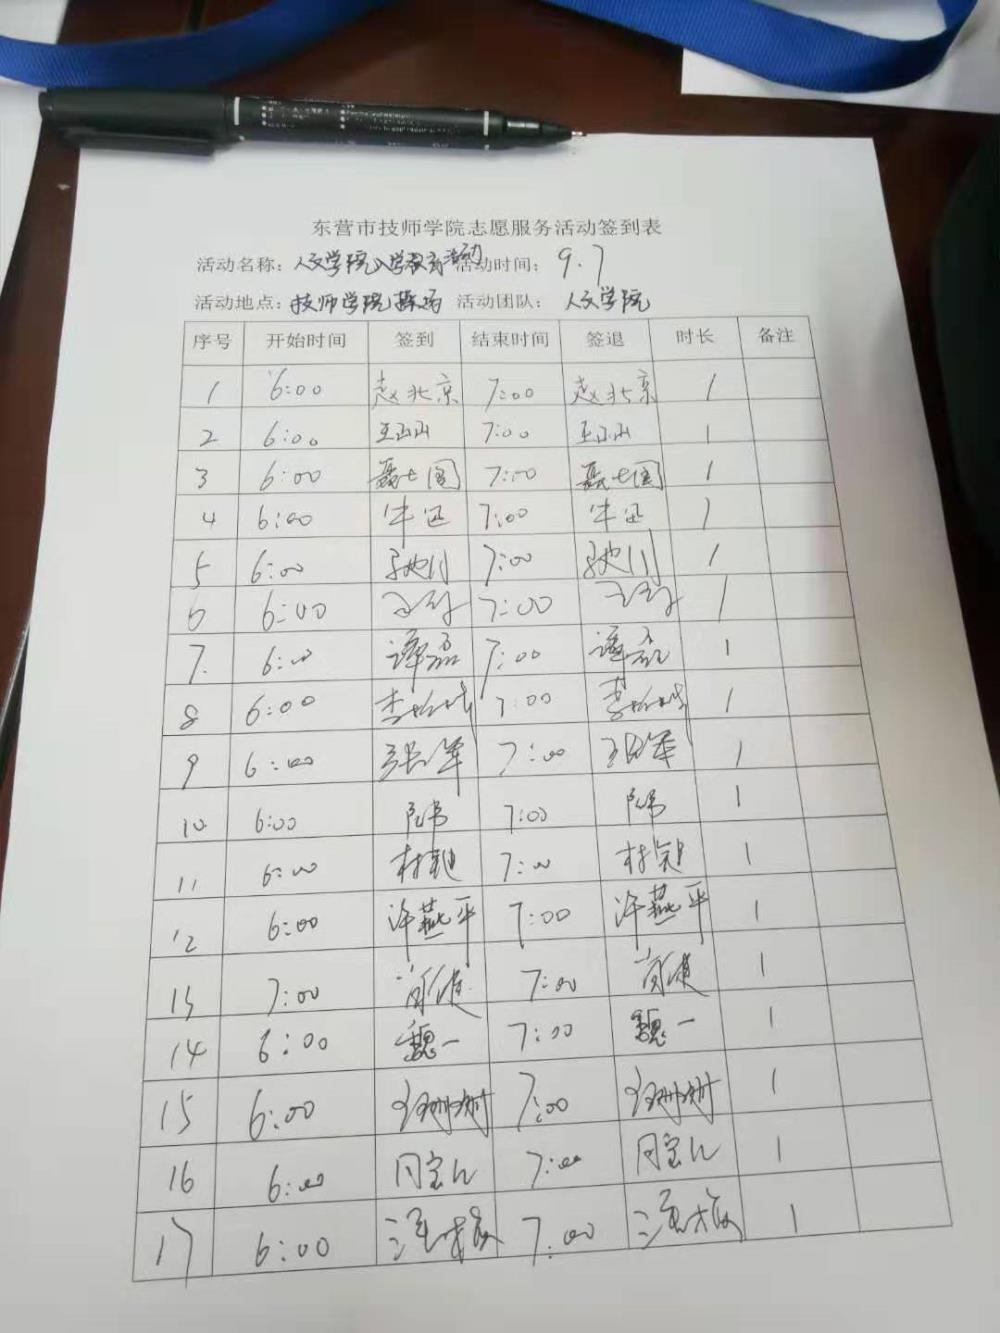 东营市技师学院志愿服务活动签到表
活动名称：人文学院入学教育活动 活动时间：9.7
活动地点：技师学院操场 活动团队：人文学院
序号 开始时间 签到 结束时间 签退 时长 备注
1 6:00 赵北京 7:00 赵北京 1
2 6:00 王山山 7:00 王山山 1
3 6:00 聂七国 7:00 聂七国 1
4 6:00 牛迅 7:00 牛迅 1
5 6:00 7:00 1
6 6:00 7:00 1
7. 6:00 谭磊 7:00 谭磊 1
8 6:00 7:00 1
9 6:00 张军 7:00 1
10 6:00 7:00 1
11 6:00 7:00 1
12 6:00 许燕平 7:00 许燕平 1
13 7:00 7:00 1
14 6:00 魏一 7:00 魏一 1
15 6:00 7:00 1
16 6:00 7:00 1
17 6:00 7:00 1